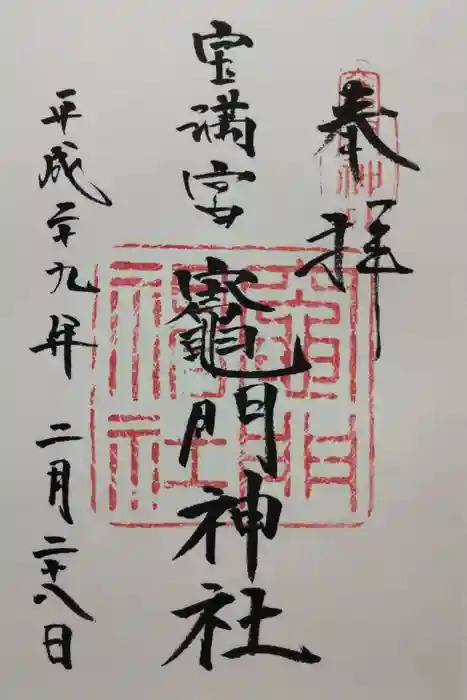 奉拝
宝満宮 竈門神社
平成二十九年 二月二十八日